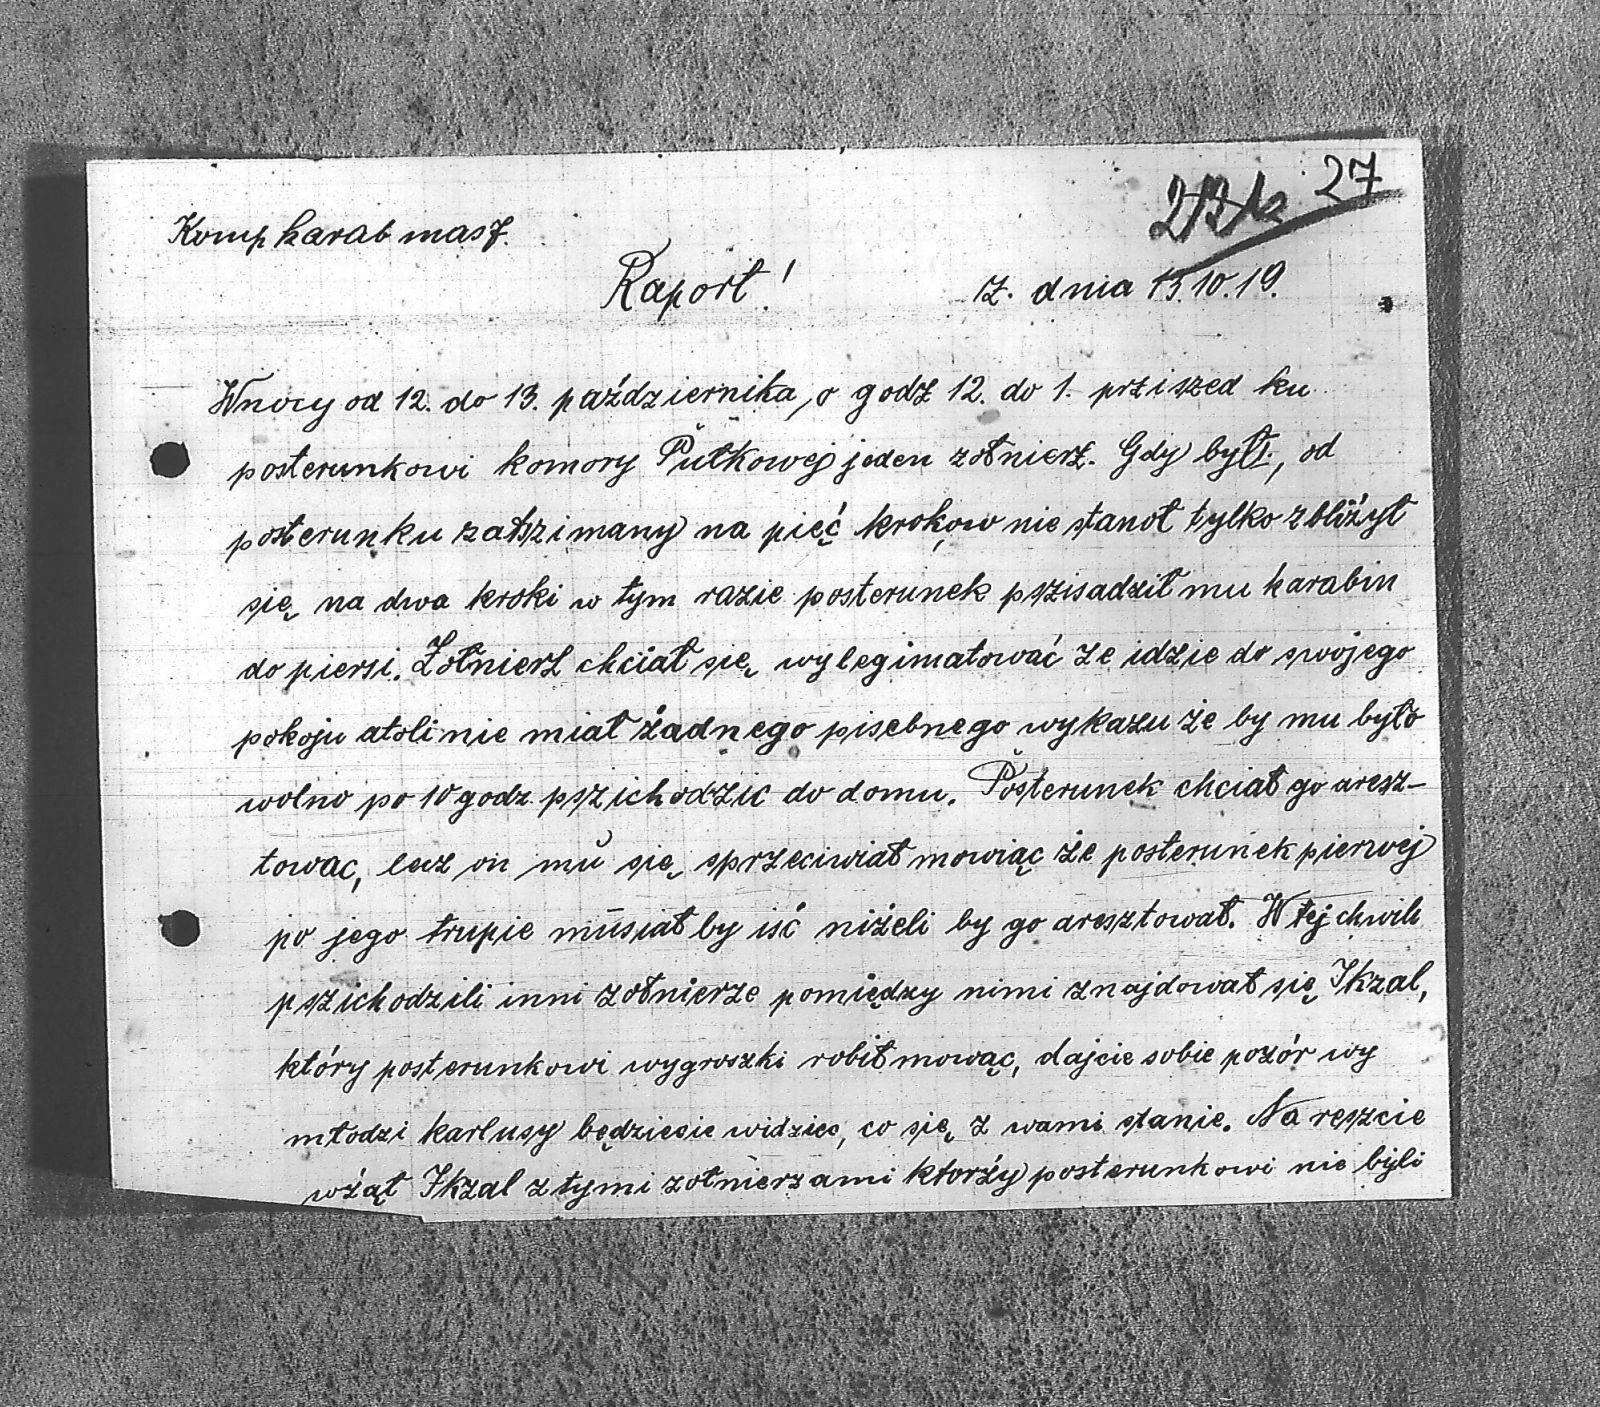 27
Komp karab masz.
Raport! Z. dnia 13.10.19.
Wnocy od 12. do 13. października, o godz 12. do 1. prziszed ku
posterunkowi komory Pułkowej jeden żołnierz. Gdy był, od
posterunku zatszimany na pięć krokow nie stanoł tylko zbliżył
się na dwa kroki w tym razie posterunek pszisadził mu karabin
do piersi. Żołnierz chciał się wylegimatować ze idzie do swojego
pokoju atoli nie miał żadnego pisebnego wykazu że by mu było
wolno po 10 godz. pszichodzic do domu. Posterunek chciał go aresz-
towac, lecz on mu się sprzeciwiał mowiąc że posterunek pierwej
po jego trupie musiał by iść niżeli by go aresztował. W tej chwili
pszichodzili inni żołnierze pomiędzy nimi znajdował się Ikzal,
który posterunkowi wygroszki robił mowąc, dajcie sobie pozór wy
młodzi karlusy będziecie widziec, co się z wami stanie. Na reszcie
wżął Ikzal z tymi zołnierzami ktorży posterunkowi nie byli